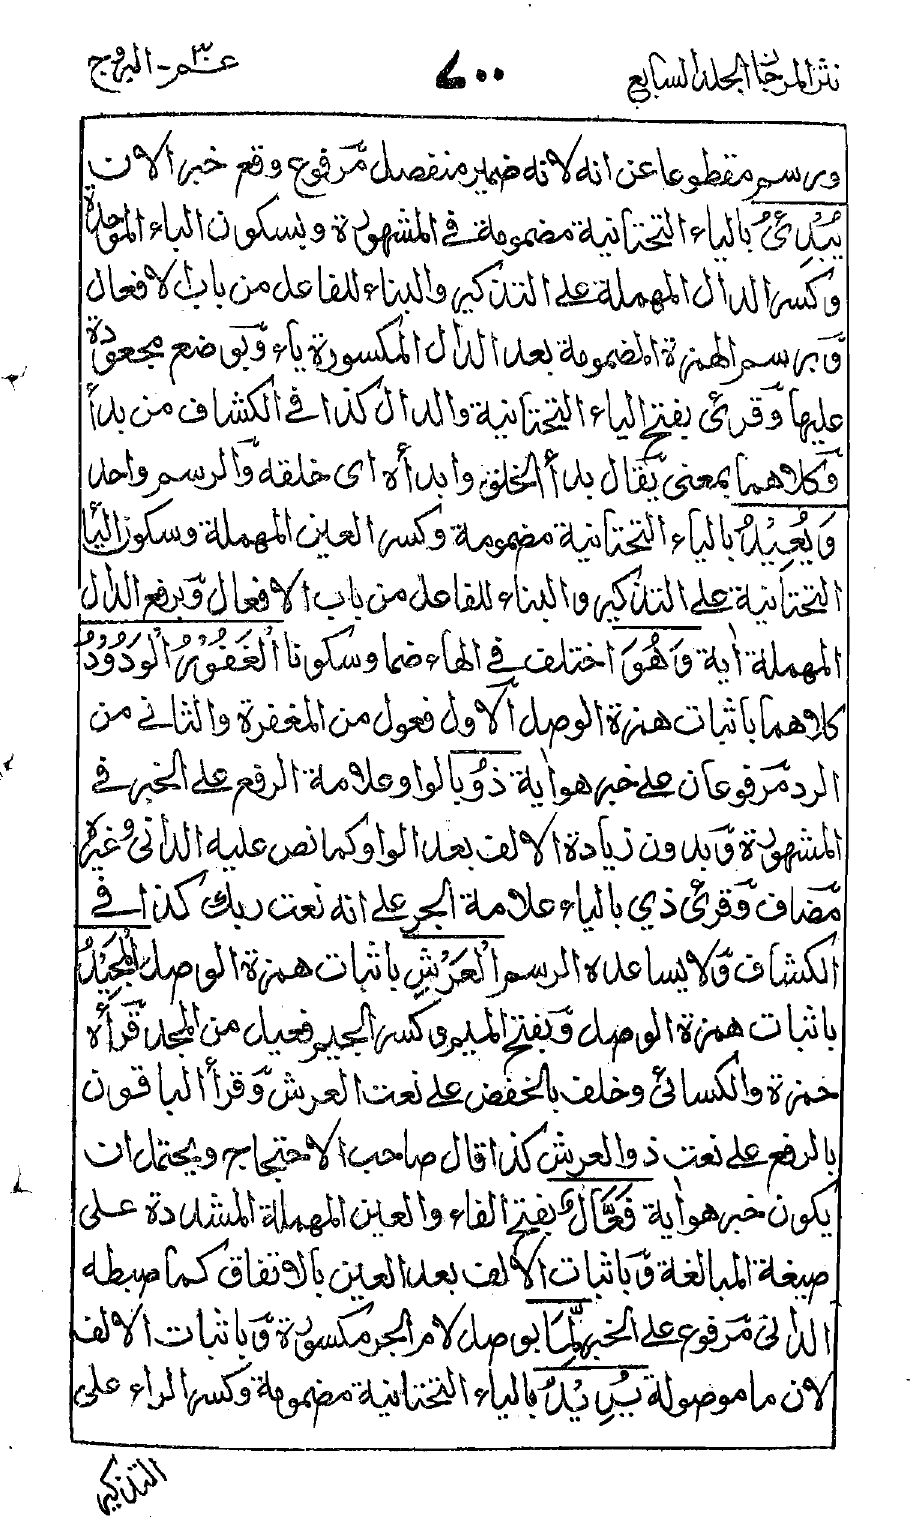 نثر المرجان الجلد السابع
٧٠٠
عم ٣٠ - البروج
ويرسم مقطوعا عن انه لانه ضمير منفصل مرفوع وقع خبر الان
يُبْدِئُ بالياء التحتانية مضمومة في المشهورة وبسكون الباء الموحدة
وكسر الدال المهملة على التذكير والبناء للفاعل من باب الافعال
وبرسم الهمزة المضمومة بعد الدال المكسورة ياء وبوضع مجعودة
عليها وقرئ بفتح الياء التحتانية والدال كذا في الكشاف من بدأ
وكلاهما بمعنى يقال بدأ الخلق وابدأه اى خلقه والرسم واحد
وَيُعِيْدُ بالياء التحتانية مضمومة وكسر العين المهملة وسكون اليا
التحتانية على التذكير والبناء للفاعل من باب الافعال وبرفع الدال
المهملة اٰية وَهُوَ اختلف في الهاء ضما وسكونا الْغَفُوْرُ الْوَدُوْدُ
كلاهما باثبات همزة الوصل الاول فعول من المغفرة والثاني من
الرد مرفوعان على خبر هو اٰية ذُوْ بالواو علامة الرفع على الخبر في
المشهورة وبدون زيادة الالف بعد الواو كما نص عليه الداني وغيره
مضاف وقرئ ذي بالياء علامة الجر على انه نعت ربك كذا في
الكشاف ولا يساعده الرسم الْعَرْشِ باثبات همزة الوصل الْمَجِيْدُ
باثبات همزة الوصل وبفتح الميم وكسر الجيم فعيل من المجد قرأه
حمزة والكسائى وخلف بالخفض على نعت العرش وقرأ الباقون
بالرفع على نعت ذو العرش كذا قال صاحب الاحتجاج ويحتمل ان
يكون خبر هو اٰية فَعَّالٌ بفتح الفاء والعين المهملة المشددة على
صيغة المبالغة وباثبات الالف بعد العين بالاتفاق كما ضبطه
الداني مرفوع على الخبر لِمَا بوصل لام الجر مكسورة وباثبات الالف
لان ما موصولة يُرِيْدُ بالياء التحتانية مضمومة وكسر الراء على
التذكير